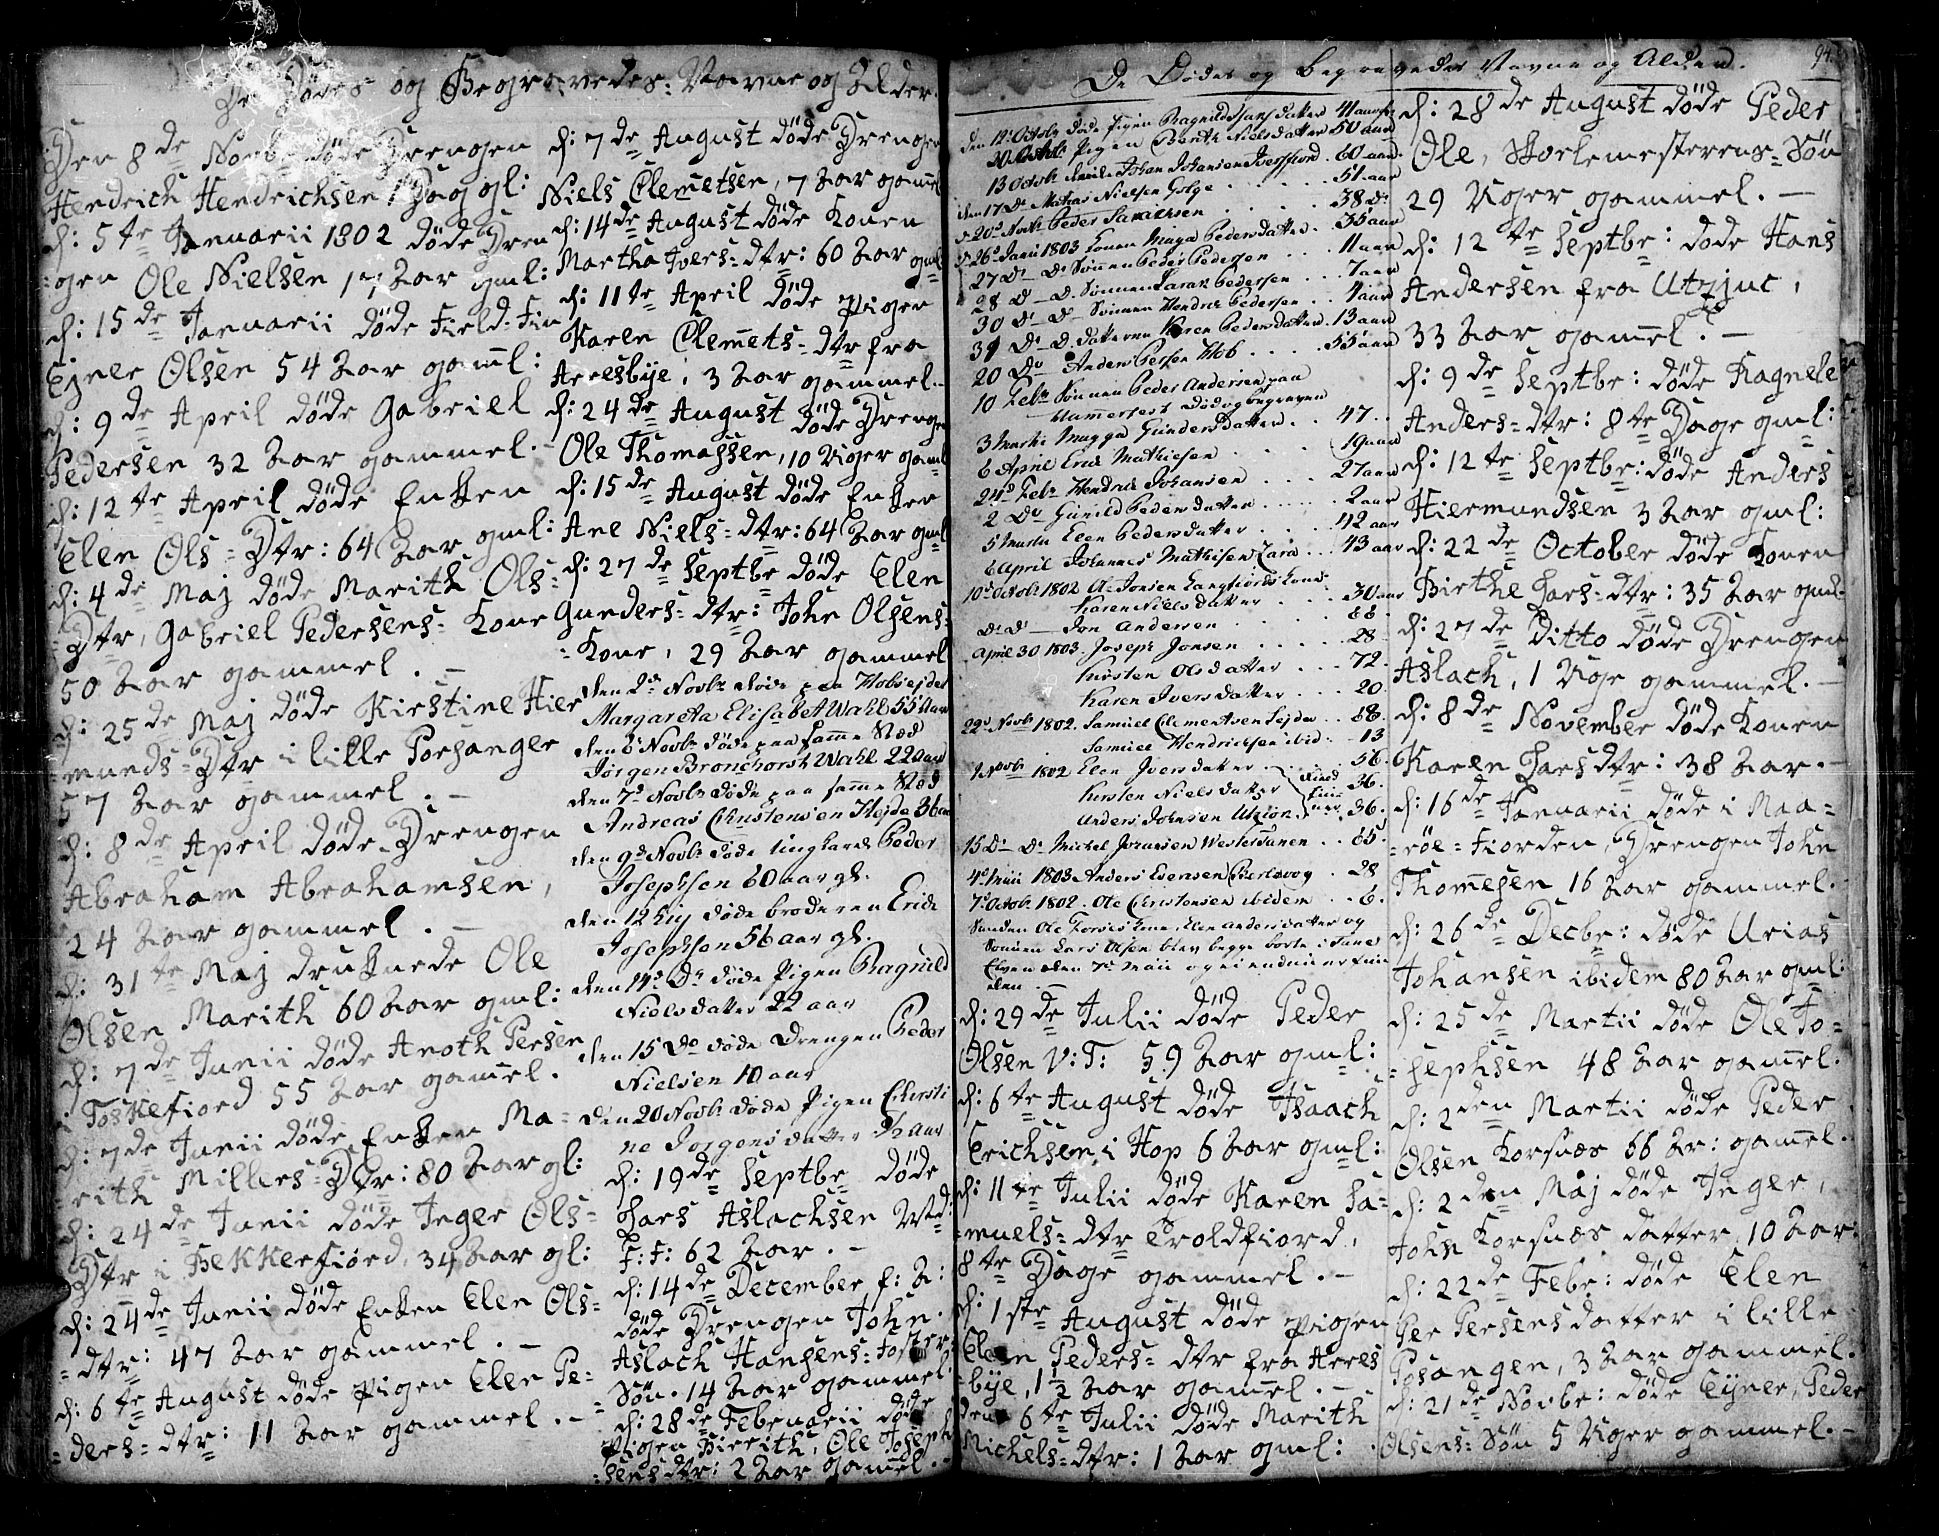 De Dødes og Begravedes Navne og Alder.
Den 8de Novbr døde Drengen
Hendrich Hendrichsen 1 Dag gl:
d: 5te Januarii 1802 døde Dren
=gen Ole Nielsen 17 Aar gml:
d: 15de Januarii døde Field-Fin
Ejner Olsen 54 Aar gaml:
d: 9de April døde Gabriel
Pedersen 32 Aar gammel.
d: 12te April døde Enken
Elen Ols=Dtr: 64 Aar gml:
d: 4de Maj døde Marith Ols=
=Dtr, Gabriel Pedersens Kone
50 Aar gammel.
d: 25de Maj døde Kirstine Hier
=munds=Dtr i lille Porsanger
57 Aar gammel.
d: 8de April døde Drengen
Abraham Abrahamsen,
24 Aar gammel.
d: 31te Maj druknede Ole
Olsen Marith 60 Aar gml:
d: 7de Junii døde Anoth Persen
i Toskefiord 55 Aar gamel.
d: 7de Junii døde Enken Ma=
=rith Millers=Dtr: 80 Aar gl:
d: 24de Junii døde Inger Ols=
Dtr i Bekkerfiord, 34 Aar gl:
d: 24de Junii døde Enken Elen Ols=
=dtr: 47 Aar gammel.
d: 6te August døde Pigen Elen Pe=
=ders=dtr: 11 Aar gammel.
d: 7de August døde Drengen
Niels Clemetsen, 7 Aar gamel
d: 14de August døde Konen
Martha Ivers=dtr: 60 Aar gml
d: 11te April døde Pigen
Karen Clemets=dtr fra
Arresbye, 3 Aar gammel.
d: 24de August døde Drengen
Ole Thomassen, 10 Uger gaml
d: 15de August døde Enken
Ane Niels=dtr: 64 Aar gml
d: 27de Septbr døde Elen
Gunders=dtr: John Olsens
=Kone, 29 Aar gammel
den 2d Novbr døde paa Hobsejdet
Margareta Elisabet Wahl 55 Aar
den 6 Novbr døde paa samme Stæd
Jørgen Bronchorst Wahl 22 aar
den 7d Novbr døde paa samme Stæd
Andreas Christensen Hejde 36 aar
den 9d Novbr døde Peder
Josephsen 60 aar gl.
den 12 døde broderen Erich
Josephsen 56 aar gl.
den 14d Do døde Pigen Ragnild
Nielsdatter 22 aar
den 15 Do døde Drengen Peder
Nielsen 10 aar
den 20 Novbr døde Pigen Christi
ne Jørgensdatter aar
d: 19de Septbr døde
Lars Aslachsen
F: F: 62 Aar.
d: 14de December f: A:
døde Drengen John.
Aslach Hansens=Foster
Søn. 14 Aar gammel
d: 28de Februarii døde
Pigen Birrith, Ole Joseph
=sens dtr: 2 Aar gamel.
De Dødes og Begravedes Navne og Alder.
94.
den 12 Octobr døde Pigen Ragnild datter 41 aar
20 Octobr Pigen Berith Nielsdatter 50 aar
13 Octobr Johan Johansen . 60 aar
den 17 Do Mathis Nielsen . . . 51 aar
d 20d Novbr Peder . . . 38 Do
d 26d Janii 1803 Konen Maga Pedersdatter . 35 aar
27 Do Do Sønnen Peder Pedersen . . 11 aar
28 D - D. Sønnen Lars Pedersen . . . 7 aar
30 Do - Do Sønnen Hendric Pedersen . . . 4 aar
31 Do - D. datteren Karen Pedersdatter . 13 aar
20 Do Anders Persen Hob . . . . 55 aar
10 Febr Sønnen Peder Andersen paa
Hammerfest død og begraven
3 Martii Magga Gundersdatter . . 47 . .
6 April Eric Mathiesen . . . . 19 aar
24d Febr Hendric Johansen . . . . 27 aar
2 Do Gunild Pedersdatter . . . . . 2 aar
5 Martii Elen Pedersdatter . . . . 42 aar
6 April Johannes Mathisen . . . 43 aar
10d Octobr 1802 Jonsen Langfiords kone
Karen Nielsdatter . . . . 30 aar
Do Do — Jon Andersen . . . . 68
April 30 1803. Joseph Jonsen . . . . 28
Kirsten Olsdatter . . . 72.
Karen Iversdatter . . . 20
22d Novbr 1802. Samuel Clementsen . . 68.
Samuel Hendricksen ibid . . 13
1 Novbr 1802 Elen Iversdatter . . . 56.
Kirsten Nielsdatter 36.
Anders Johnsen 36.
15 Do Do Michel Joransen Westertanen . . 65.
4d Maii 1803 Anders . 28
7d Octobr 1802. Ole Christensen ibidem . . 6.
Ole kone Elen Andersdatter og
Sønnen Lars Olsen blev begge borte i Tana
Elven den 7d Maii og ei endnu er fun
den.
d: 29de Julii døde Peder
Olsen V: T: 59 Aar gml:
d: 6te August døde Isaach
Erichsen, i Hop 6 Aar gml:
d: 11te Julii døde Karen Sa=
=muels=dtr Troldfiord,
8te Dage gammel.
d: 1ste August døde Pigen
Elen Peders=dtr fra Arres
=bye, 1½ Aar gamel.
den 6te Julii døde Marith
Michels=dtr: 1 Aar gml:
d: 28de August døde Peder
Ole, Skolemesterens=Søn
29 Uger gammel.
d: 12te Septbr: døde Hans
Andersen fra Utzjuc,
33 Aar gamel.
d: 9de Septbr: døde Ragnele
Anders=dtr: 8te Dage gml:
d: 12te Septbr: døde Anders
Hiermundsen 3 Aar gml:
d: 22de October døde Konen
Birthe Lars=dtr: 35 Aar gml
d: 27de Ditto døde Drengen
Aslach, 1 Uge gammel.
d: 8de November døde Konen
Karen Larsdtr: 38 Aar.
d: 16de Januarii døde i Maa=
=røe=Fiorden, Drengen John
Thomesen 16 Aar gammel.
d: 26de Decbr: døde Urias
Johansen ibidem 80 Aar gml:
d: 25de Martii døde Ole Jo=
=sephsen 48 Aar gamel.
d: 2den Martii døde Peder
Olsen Korsnæs 66 Ar: gamel.
d: 2den Maj døde Inger,
John Korsnæs datter, 10 Aar:
d: 22de Febr: døde Elen
Per Persens datter i lille
Posangen, 3 Aar gammel.
d: 21de Novbr: døde Ejner, Peder
Olsens=Søn 5 Uger gammel.